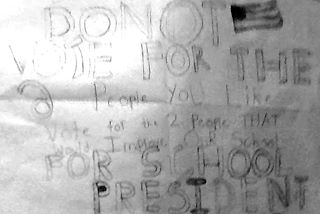 DO NOT
VOTE FOR THE
2 People you like
Vote for the 2 People THAT
Would Improve Our School
FOR SCHOOL
PRESIDENT